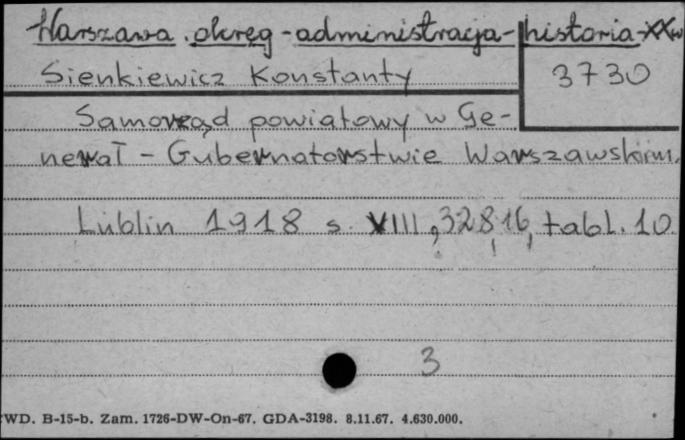 Warszawa. okręg - administracja - historia - XX w
Sienkiewicz Konstanty
3730
Samorząd powiatowy w Ge-
nerał - Gubernatorstwie Warszawskim.
Lublin 1918 s. VIII, 328, 16, tabl. 10
3
WD. B-15-b. Zam. 1726-DW-On-67. GDA-3198. 8.11.67. 4.630.000.